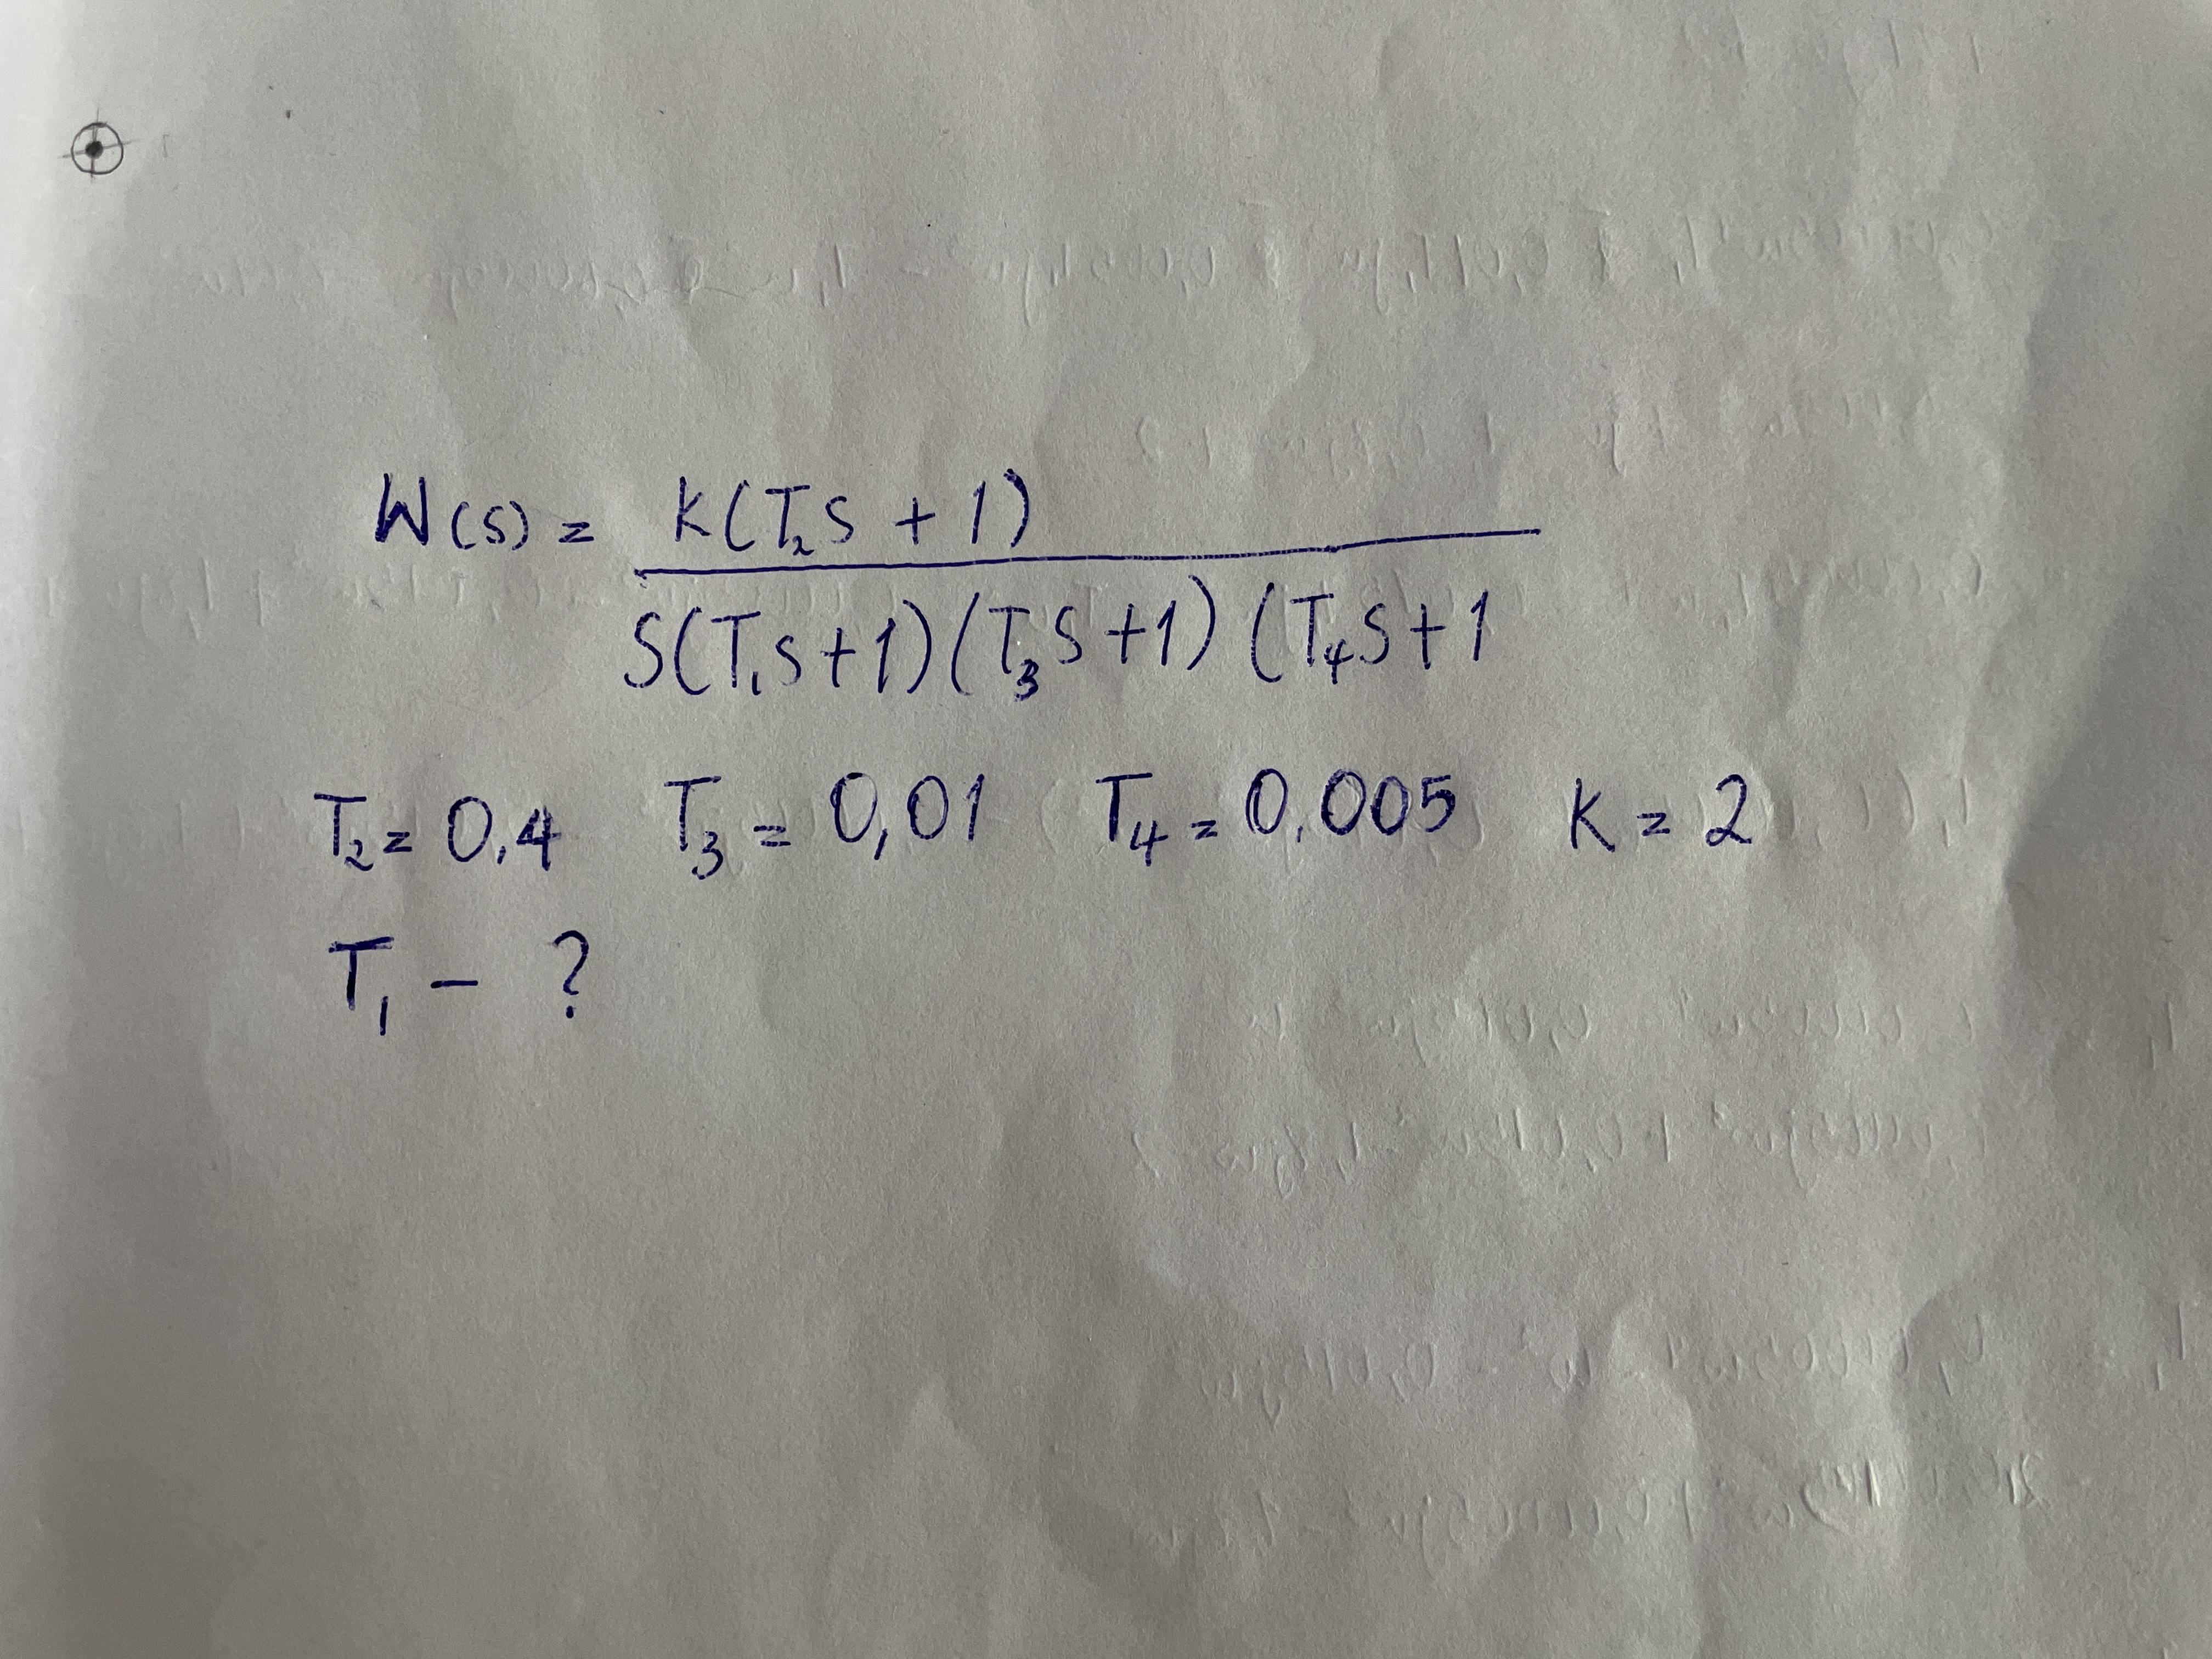 W(s) = K(T₂S + 1)
S(T₁S+1)(T₃S+1)(T₄S+1
T₂ = 0.4 T₃ = 0,01 T₄ = 0.005 K = 2
T₁ - ?